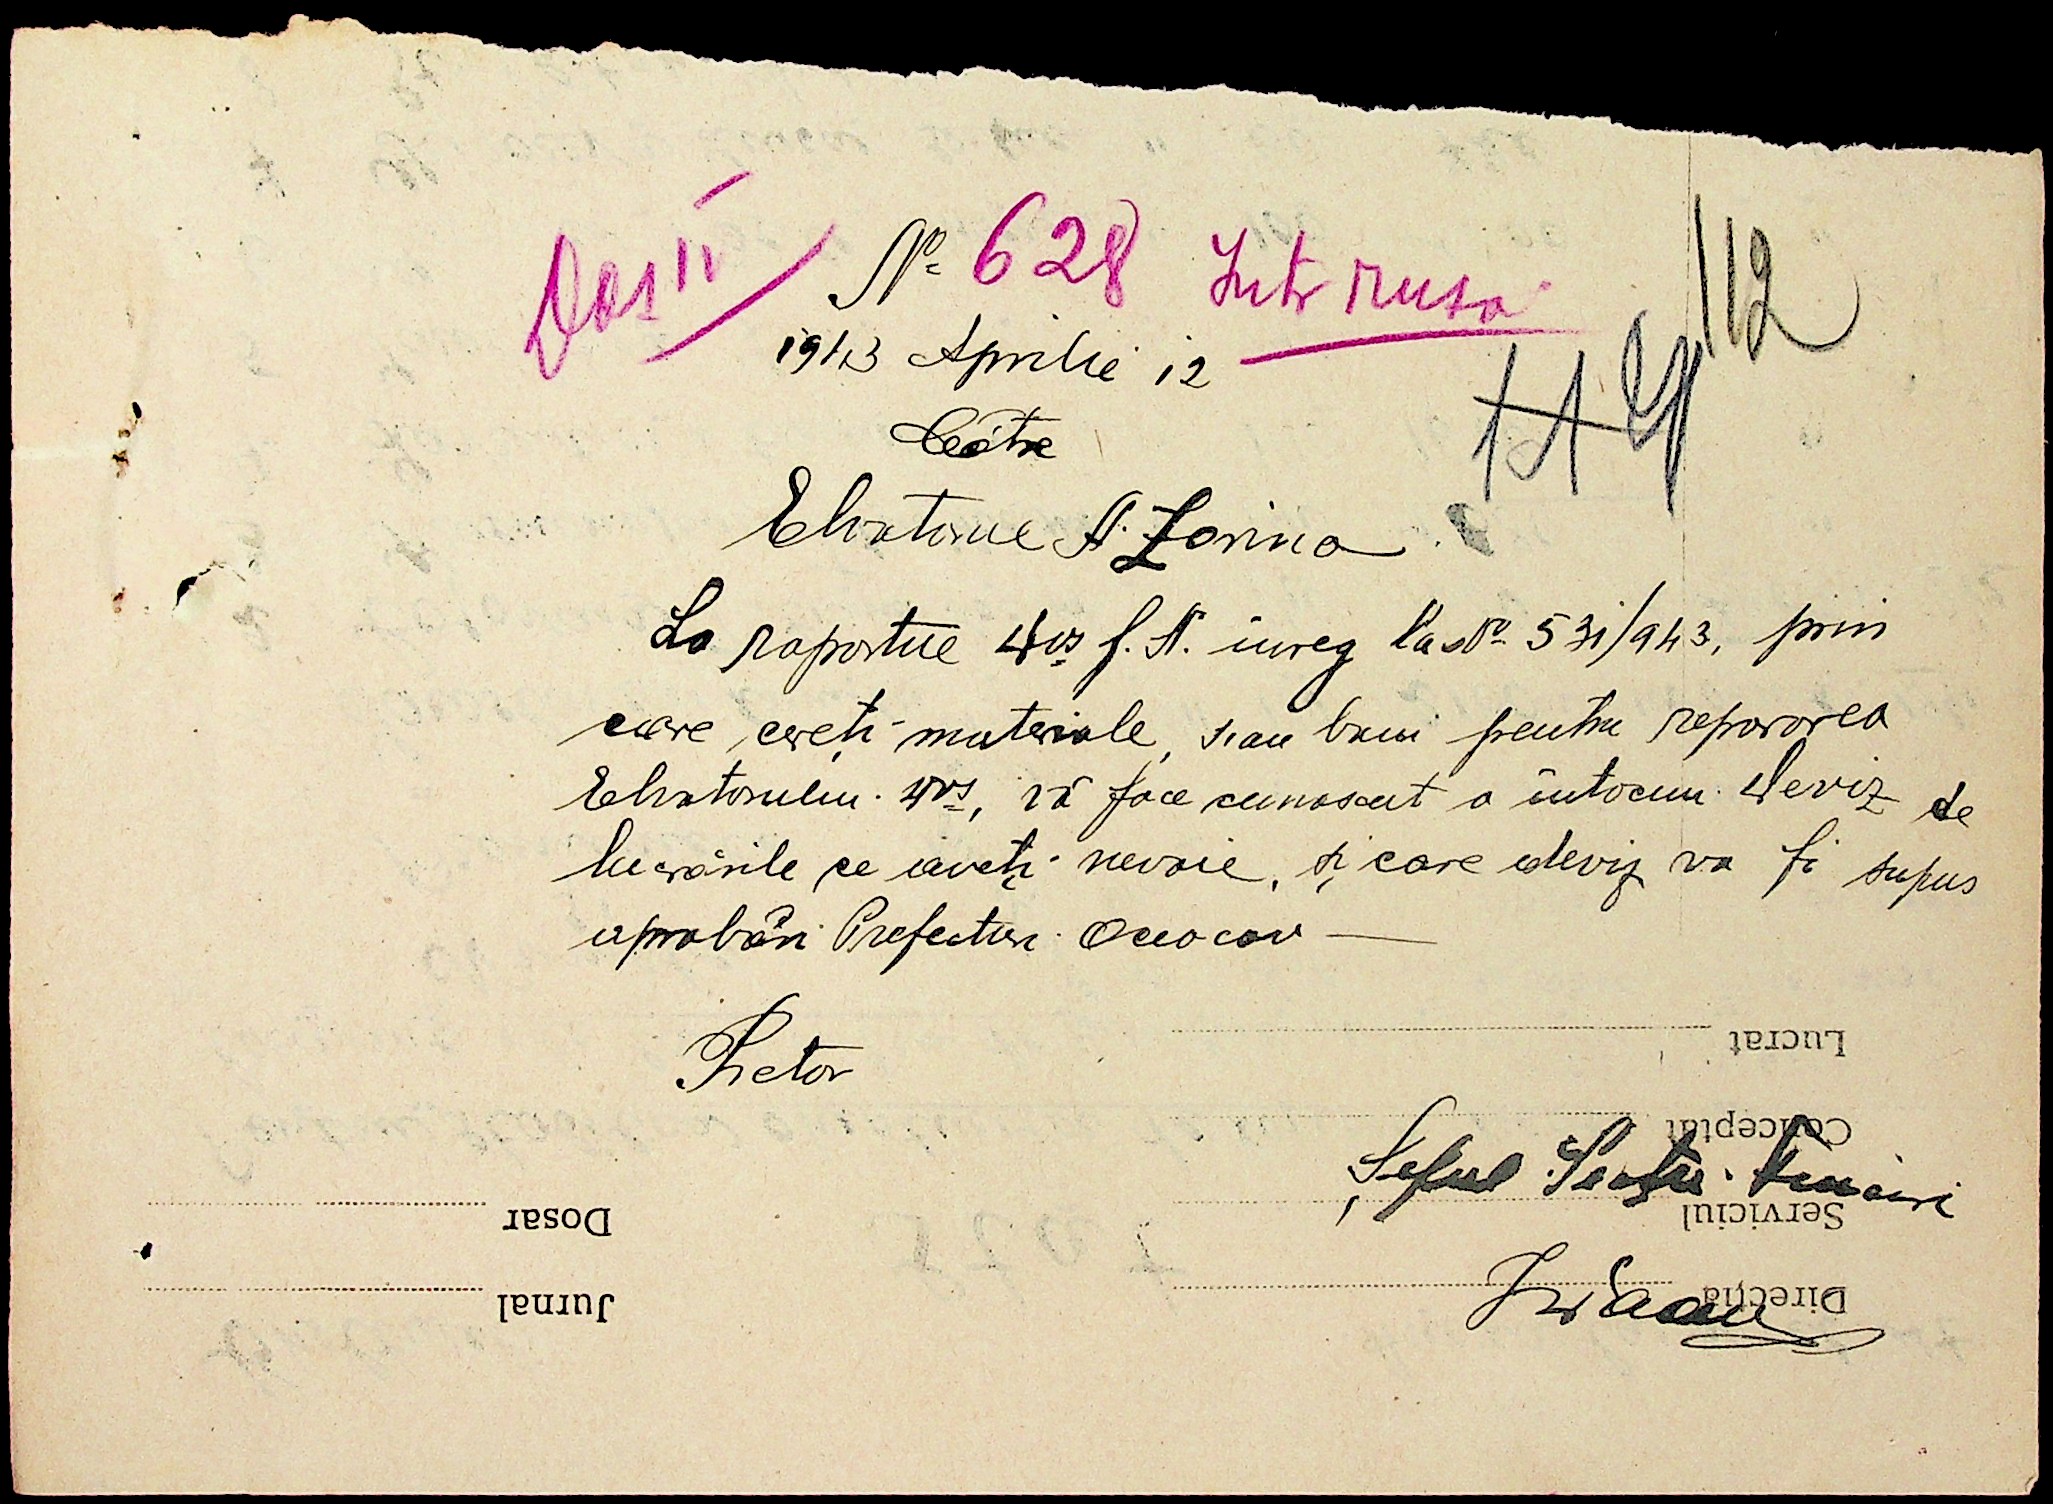 Dos II
No 628 Intr rusa
112
1943 Aprilie 12
Către
Elvatorul A. Zorina
La raportul Dvs f. N. inreg la No 531/943, prin
care cereți materiale, sau bani pentru repararea
Elvatorului Dvs, vă face cunoscut a intocmi deviz de
lucrările ce aveți nevoie, și care deviz va fi supus
aprobări Prefecturi Oceacov
Pretor
Lucrat
Conceptat
Șeful Secție
Serviciul
Direcția
Dosar
Jurnal